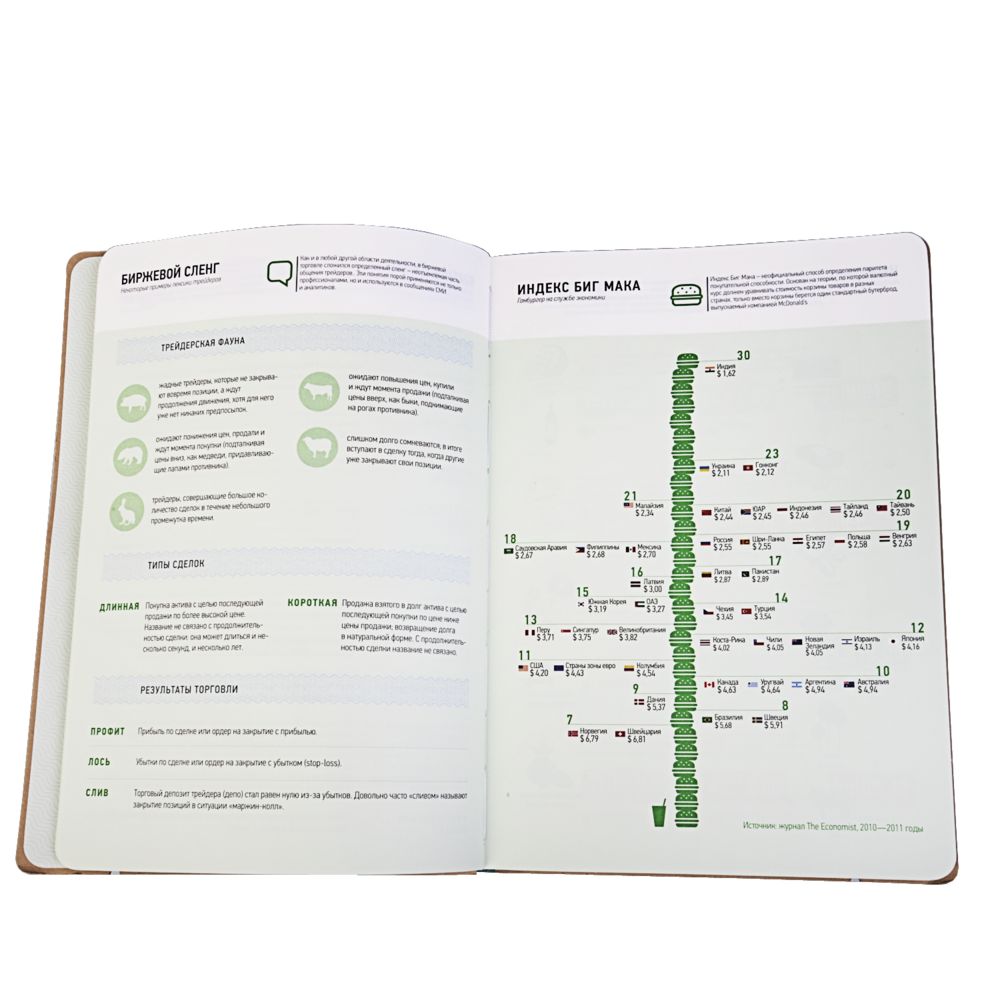 БИРЖЕВОЙ СЛЕНГ
Некоторые примеры лексики трейдеров
Как и в любой другой области деятельности, в биржевой
торговле сложился определенный сленг – неотъемлемая часть
общения трейдеров. Эти понятия порой применяются не только
профессионалами, но и используются в сообщениях СМИ
и аналитиков.
ТРЕЙДЕРСКАЯ ФАУНА
жадные трейдеры, которые не закрыва-
ют вовремя позиции, а ждут
продолжения движения, хотя для него
уже нет никаких предпосылок.
ожидают повышения цен, купили
и ждут момента продажи (подталкивая
цены вверх, как быки, поднимающие
на рогах противника).
ожидают понижения цен, продали и
ждут момента покупки (подталкивая
цены вниз, как медведи, придавливаю-
щие лапами противника).
слишком долго сомневаются, в итоге
вступают в сделку тогда, когда другие
уже закрывают свои позиции.
трейдеры, совершающие большое ко-
личество сделок в течение небольшого
промежутка времени.
ТИПЫ СДЕЛОК
ДЛИННАЯ Покупка актива с целью последующей
продажи по более высокой цене.
Название не связано с продолжитель-
ностью сделки: она может длиться и не-
сколько секунд, и несколько лет.
КОРОТКАЯ Продажа взятого в долг актива с целью
последующей покупки по цене ниже
цены продажи, возвращение долга
в натуральной форме. С продолжитель-
ностью сделки название не связано.
РЕЗУЛЬТАТЫ ТОРГОВЛИ
ПРОФИТ Прибыль по сделке или ордер на закрытие с прибылью.
ЛОСЬ Убытки по сделке или ордер на закрытие с убытком (stop-loss).
СЛИВ Торговый депозит трейдера (депо) стал равен нулю из-за убытков. Довольно часто «сливом» называют
закрытие позиций в ситуации «маржин-колл».
ИНДЕКС БИГ МАКА
Гамбургер на службе экономики
Индекс Биг Мака – неофициальный способ определения паритета
покупательной способности. Основан на теории, по которой валютный
курс должен уравнивать стоимость корзины товаров в разных
странах, только вместо корзины берется один стандартный бутерброд,
выпускаемый компанией McDonald's
30
Индия
$ 1,62
23
Украина Гонконг
$ 2,11 $ 2,12
21
Малайзия
$ 2,34
20
Китай ЮАР Индонезия Тайланд Тайвань
$ 2,44 $ 2,45 $ 2,46 $ 2,46 $ 2,50
19
Россия Шри-Ланка Египет Польша Венгрия
$ 2,55 $ 2,55 $ 2,57 $ 2,58 $ 2,63
18
Саудовская Аравия Филиппины Мексика
$ 2,67 $ 2,68 $ 2,70
17
Литва Пакистан
$ 2,87 $ 2,89
16
Латвия
$ 3,00
15
Южная Корея ОАЭ
$ 3,19 $ 3,27
14
Чехия Турция
$ 3,45 $ 3,54
13
Перу Сингапур Великобритания
$ 3,71 $ 3,75 $ 3,82
12
Коста-Рика Чили Новая Зеландия Израиль Япония
$ 4,02 $ 4,05 $ 4,05 $ 4,13 $ 4,16
11
США Страны зоны евро Колумбия
$ 4,20 $ 4,43 $ 4,54
10
Канада Уругвай Аргентина Австралия
$ 4,63 $ 4,64 $ 4,94 $ 4,94
9
Дания
$ 5,37
8
Бразилия Швеция
$ 5,68 $ 5,91
7
Норвегия Швейцария
$ 6,79 $ 6,81
Источник: журнал The Economist, 2010—2011 годы